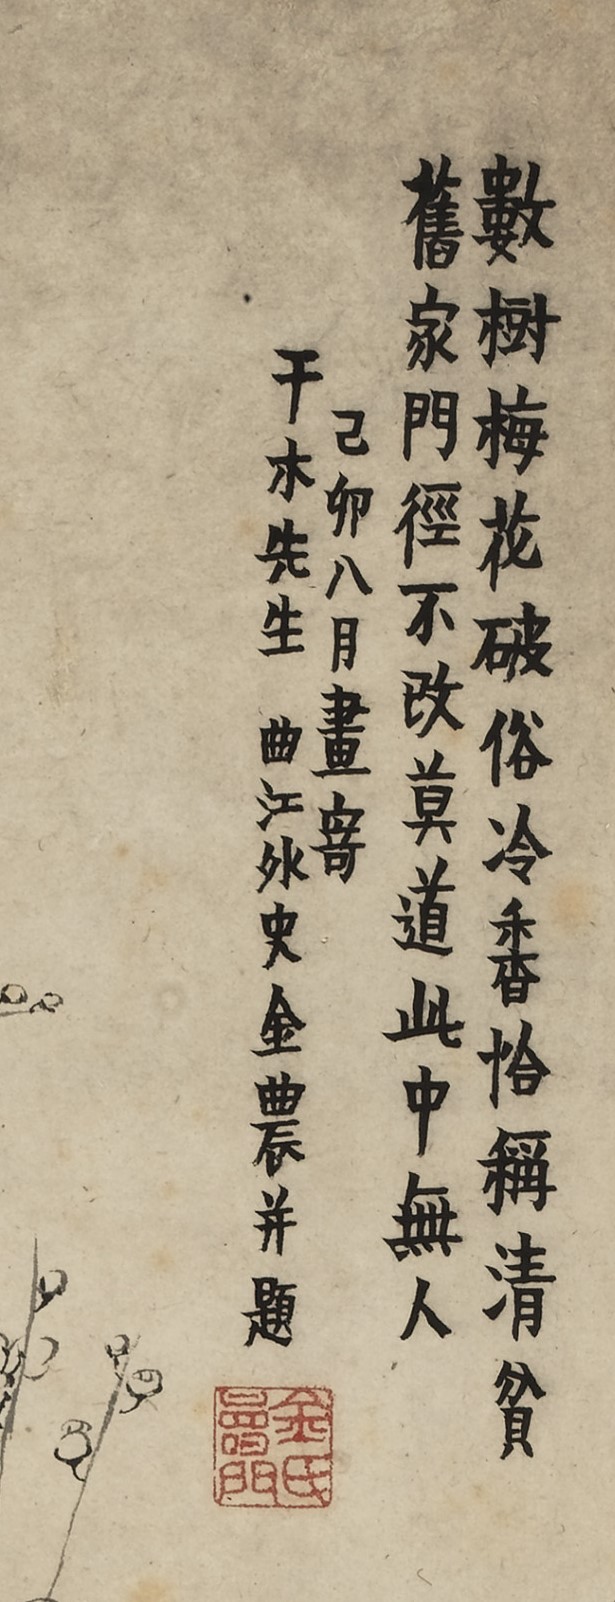 數樹梅花破俗冷香恰稱清貧
舊家門徑不改莫道此中無人
己卯八月畫寄
干木先生 曲江外史金農并題
金氏
壽門